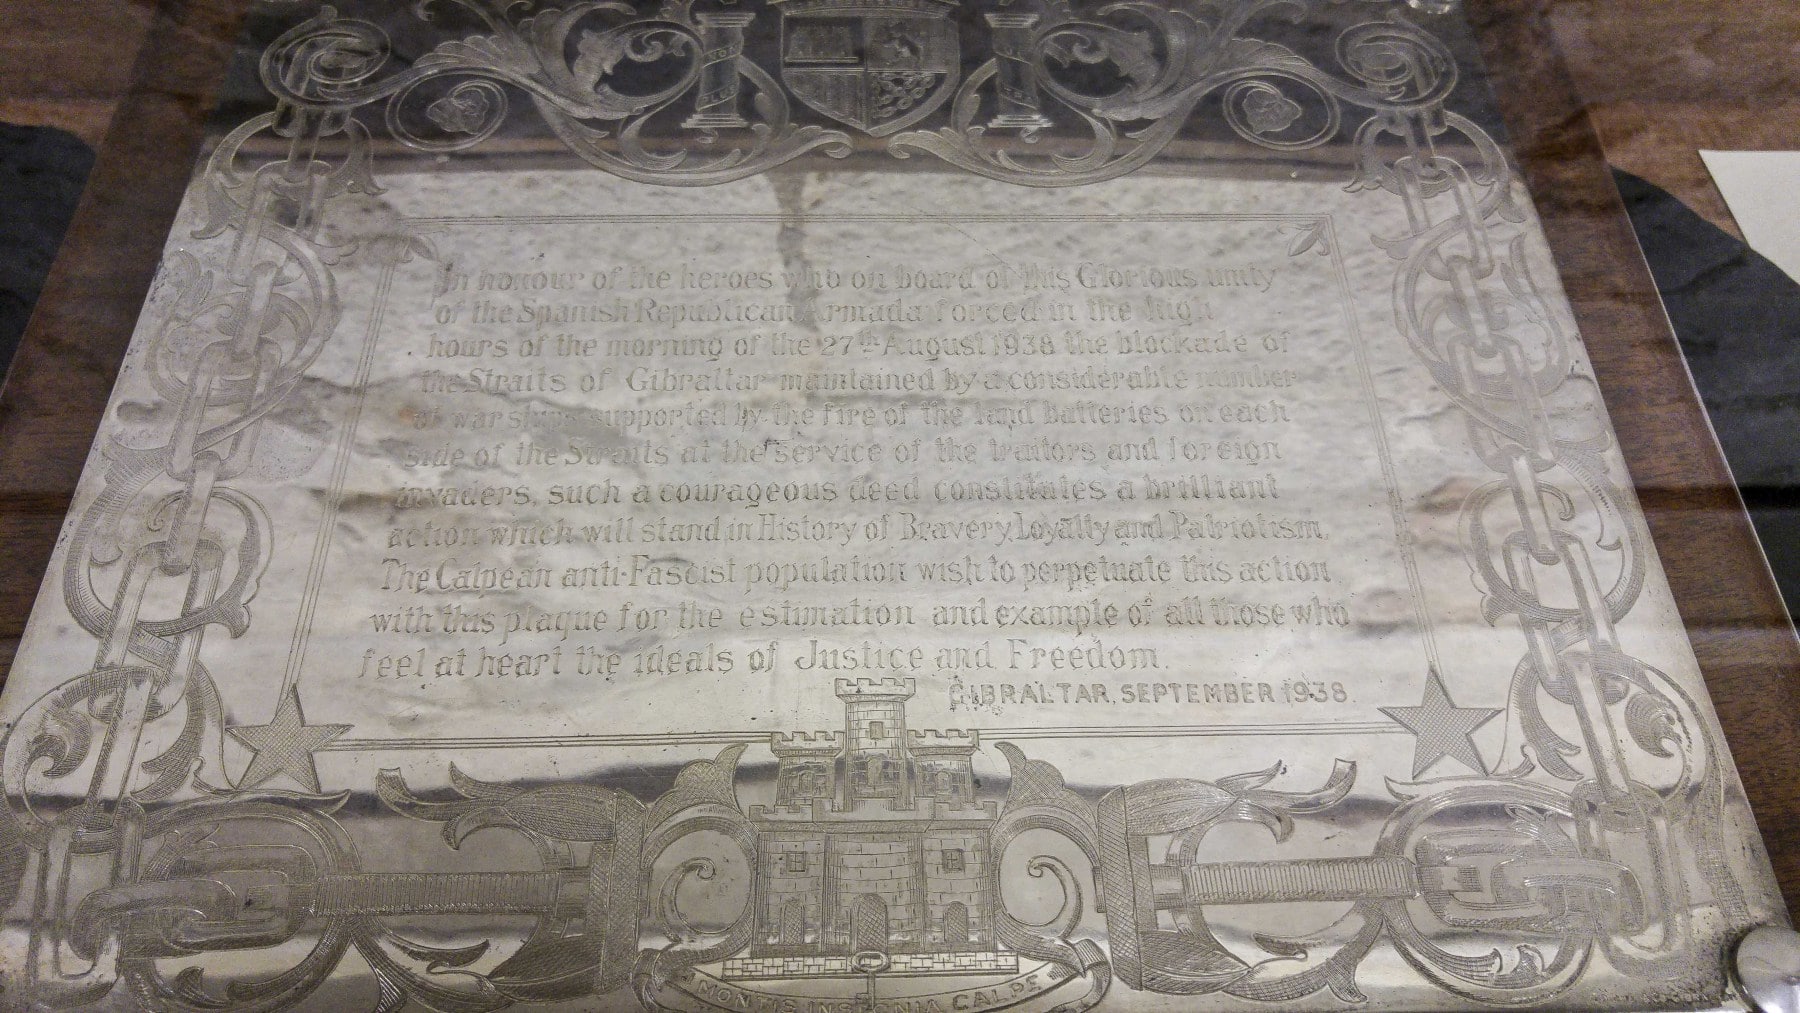 In honour of the heroes who on board of this Glorious unity
of the Spanish Republican Armada forced in the high
hours of the morning of the 27th August 1938 the blockade of
the Straits of Gibraltar maintained by a considerable number
of war ships supported by the fire of the land batteries on each
side of the Straits at the service of the traitors and foreign
invaders, such a courageous deed constitutes a brilliant
action which will stand in History of Bravery, Loyalty and Patriotism.
The Calpean anti-Fascist population wish to perpetuate this action
with this plaque for the estimation and example of all those who
feel at heart the ideals of Justice and Freedom.
GIBRALTAR, SEPTEMBER 1938.
MONTIS INSIGNIA CALPE